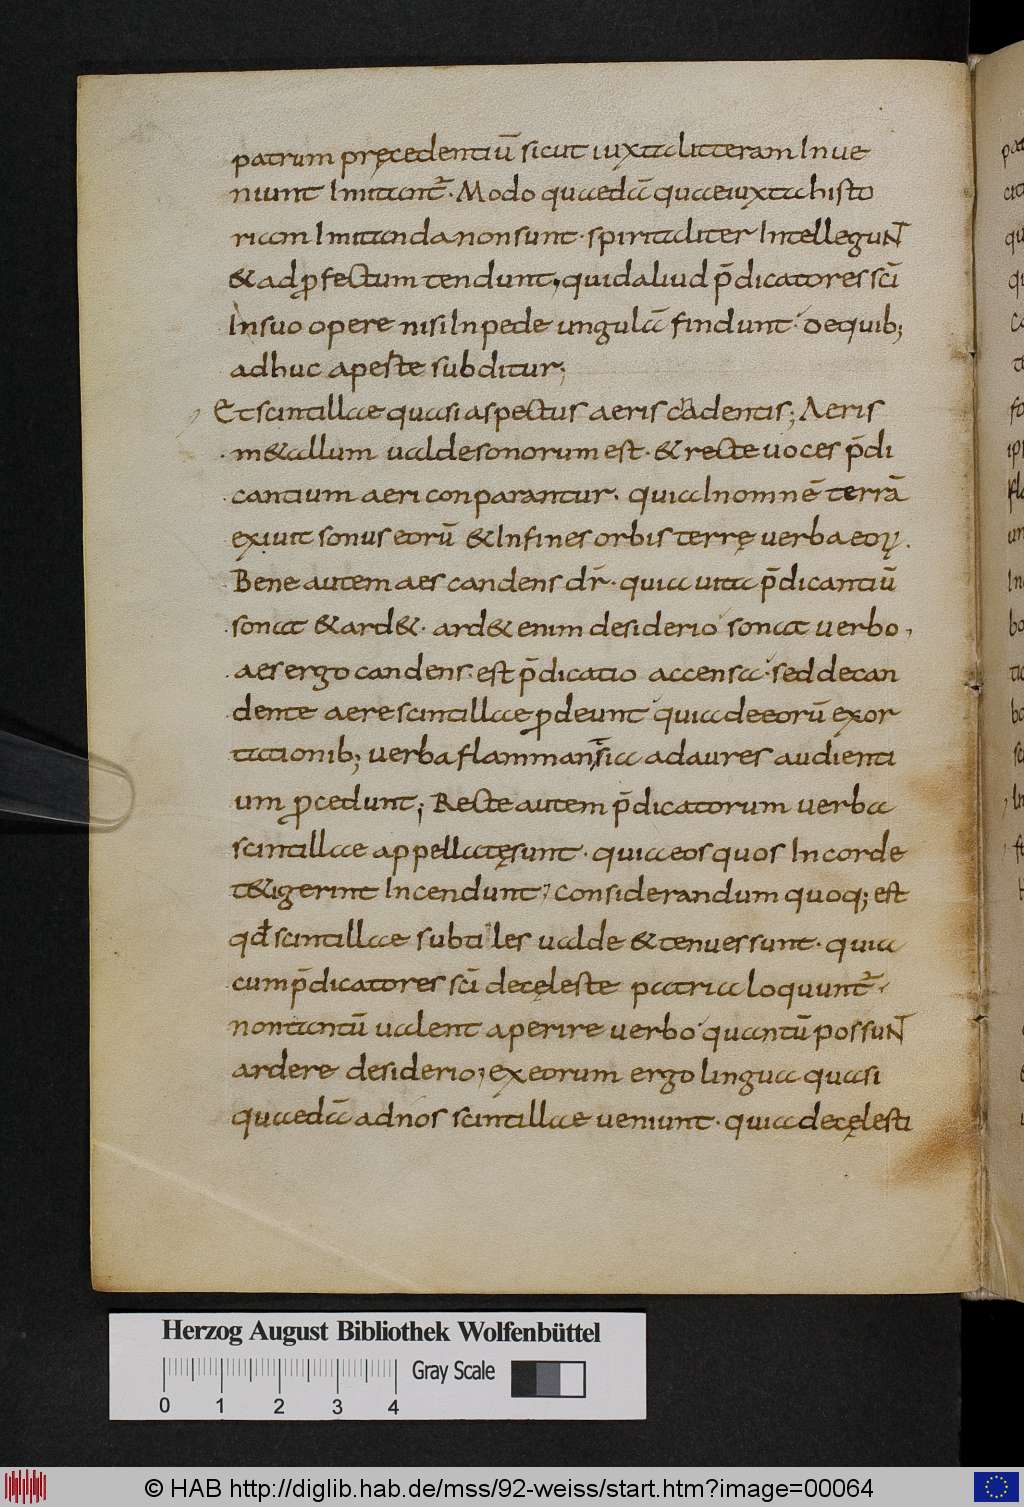 patrum pręcedentiū sicut iuxta litteram Inue
niunt Imitant̄. Modo quaedā quae iuxta histo
riam Imitanda non sunt. spiritaliter IntelleguN̄
& ad ꝓfectum tendunt, quid aliud p̄dicatores sc̄i
In suo opere nisi In pede ungulā findunt. De quib;
adhuc apeste subditur;
Et scintillae quasi aspectus aeris candentis; Aeris
m&allum ualde sonorum est. & recte uoces p̄di
cantium aeri conparantur. quia In omnē terrā
exiuit sonus eorū & In fines orbis terrę uerba eoꝝ.
Bene autem aes candens dr̄. quia uita p̄dicantiū
sonat & ard&. ard& enim desiderio sonat uerbo,
aes ergo candens. est p̄dicatio accensa. sed de can
dente aere scintillae ꝓdeunt quia de eorū exor
tationib; uerba flammantia ad aures audienti
um ꝓcedunt; Recte autem p̄dicatorum uerba
scintillae appellatę sunt. quia eos quos In corde
t&igerint Incendunt, Considerandum quoq; est
qđ scintillae subtiles ualde & tenues sunt. quia
cum p̄dicatores sc̄i de cęleste patria loquunt̄.
non tantū ualent aperire uerbo quantū possuN̄
ardere desiderio, ex eorum ergo lingua quasi
quaedā ad nos scintillae ueniunt. quia de cęlesti
Herzog August Bibliothek Wolfenbüttel
Gray Scale
0 1 2 3 4
© HAB http://diglib.hab.de/mss/92-weiss/start.htm?image=00064